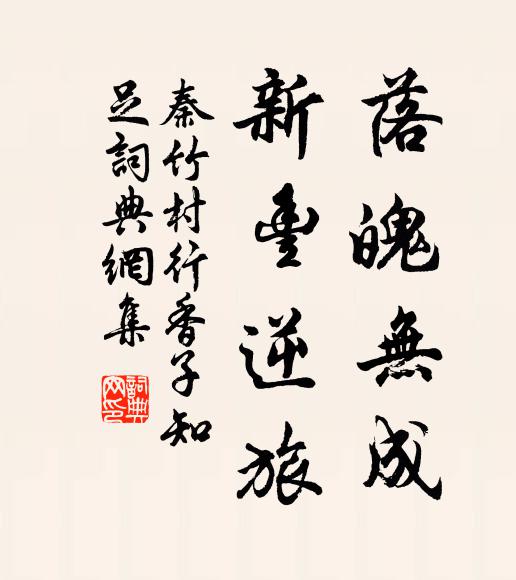 落魄無成
新豐逆旅
秦竹村行香子知
足詞典網集
詞典网印